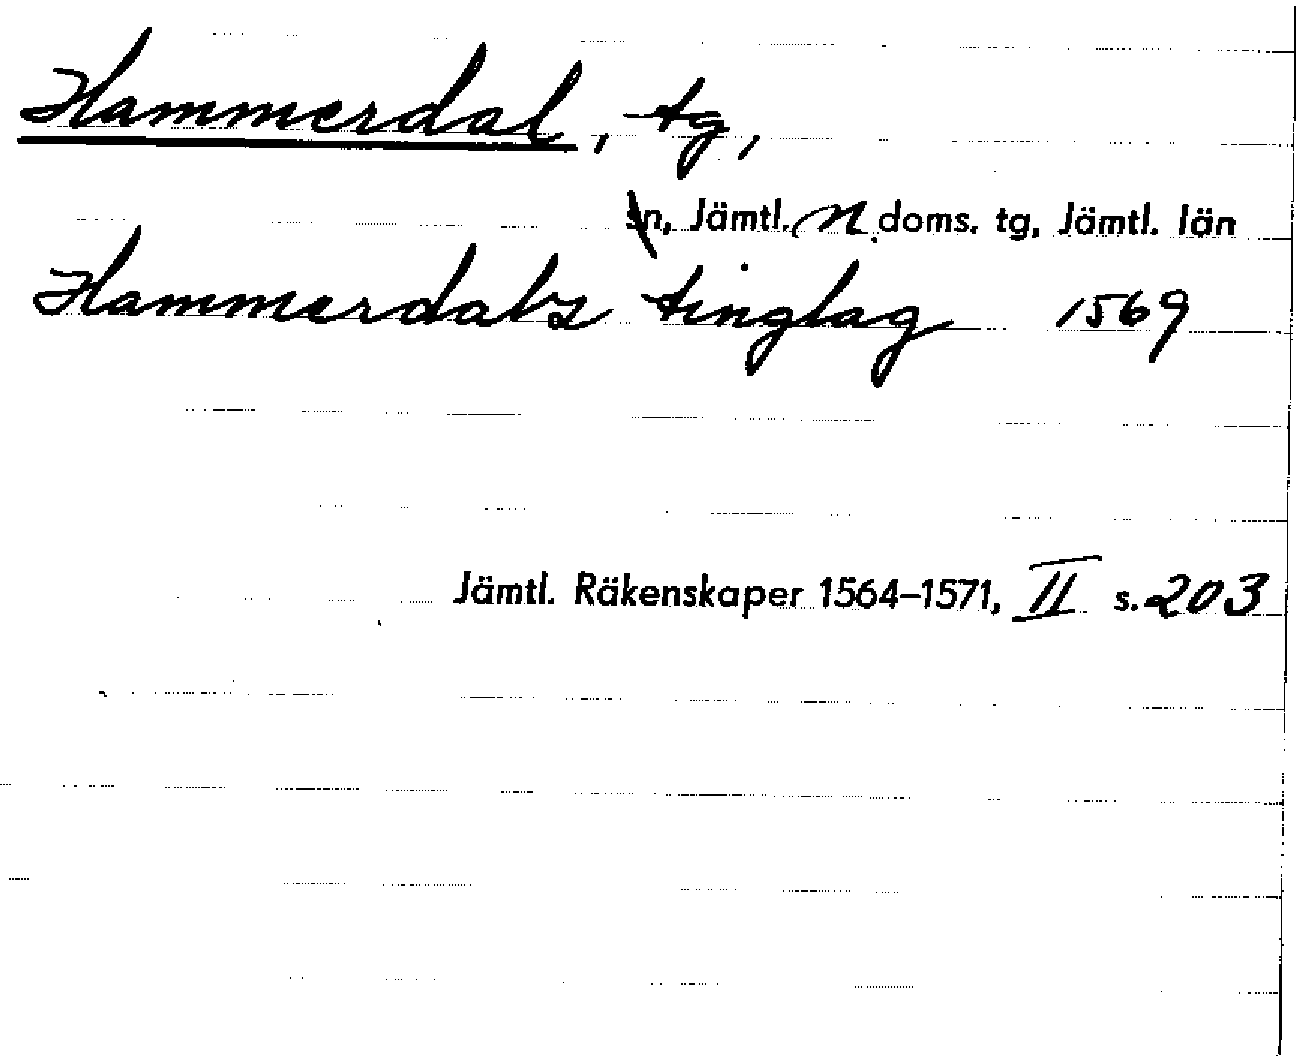 Hammerdal, tg,
sn, Jämtl. n. doms. tg, Jämtl. län
Hammerdals tinglag 1569
Jämtl. Räkenskaper 1564–1571, II s. 203